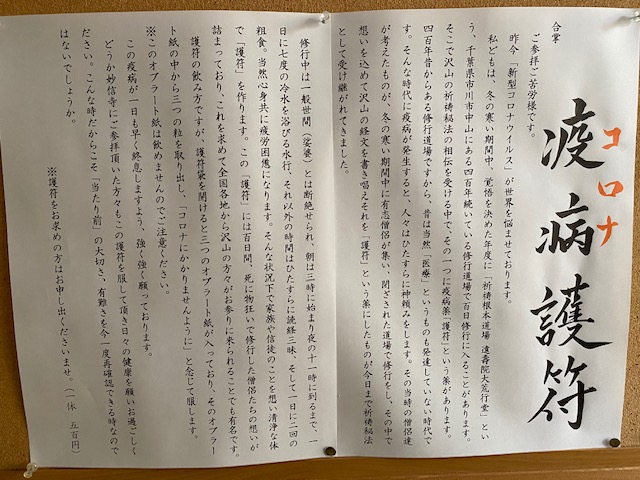 コロナ
疫病護符
合掌
ご参拝ご苦労様です。
昨今「新型コロナウイルス」が世界を悩ませております。
私どもは、冬の寒い期間中、覚悟を決めた年度に「祈祷根本道場 遠壽院大荒行堂」とい
う、千葉県市川市中山にある四百年続いている修行道場で百日修行に入ることがあります。
そこで沢山の祈祷秘法の相伝を受ける中で、その一つに疫病薬「護符」という薬があります。
四百年昔からある修行道場ですから、昔は当然「医療」というものも発達していない時代で
す。そんな時代に疫病が発生すると、人々はひたすらに神頼みをします。その当時の僧侶達
が考えたものが、冬の寒い期間中に有志僧侶が集い、閉ざされた道場で修行をし、その中で
想いを込めて沢山の経文を書き唱えそれを「護符」という薬にしたものが今日まで祈祷秘法
として受け継がれてきました。
修行中は一般世間（娑婆）とは断絶せられ、朝は三時に始まり夜の十一時に到るまで、一
日に七度の冷水を浴びる水行、それ以外の時間はひたすらに読経三昧、そして一日に二回の
粗食。当然心身共に疲労困憊になります。そんな状況下で家族や信徒のことを想い清浄な体
で「護符」を作ります。この「護符」には百日間、死に物狂いで修行した僧侶たちの想いが
詰まっており、これを求めて全国各地から沢山の方々がお参りに来られることでも有名です。
護符の飲み方ですが、護符袋を開けると三つのオブラート紙が入っており、そのオブラー
ト紙の中から三つの粒を取り出し、「コロナにかかりませんように」と念じて服します。
※このオブラート紙は飲めませんのでご注意ください。
この疫病が一日も早く終息しますよう、強く強く願っております。
どうか妙信寺にご参拝頂いた方々もこの護符を服して頂き日々の健康を願いお過ごしく
ださい。こんな時だからこそ「当たり前」の大切さ、有難さを今一度再確認できる時なので
はないでしょうか。
※護符をお求めの方はお申し出くださいませ。（一体 五百円）